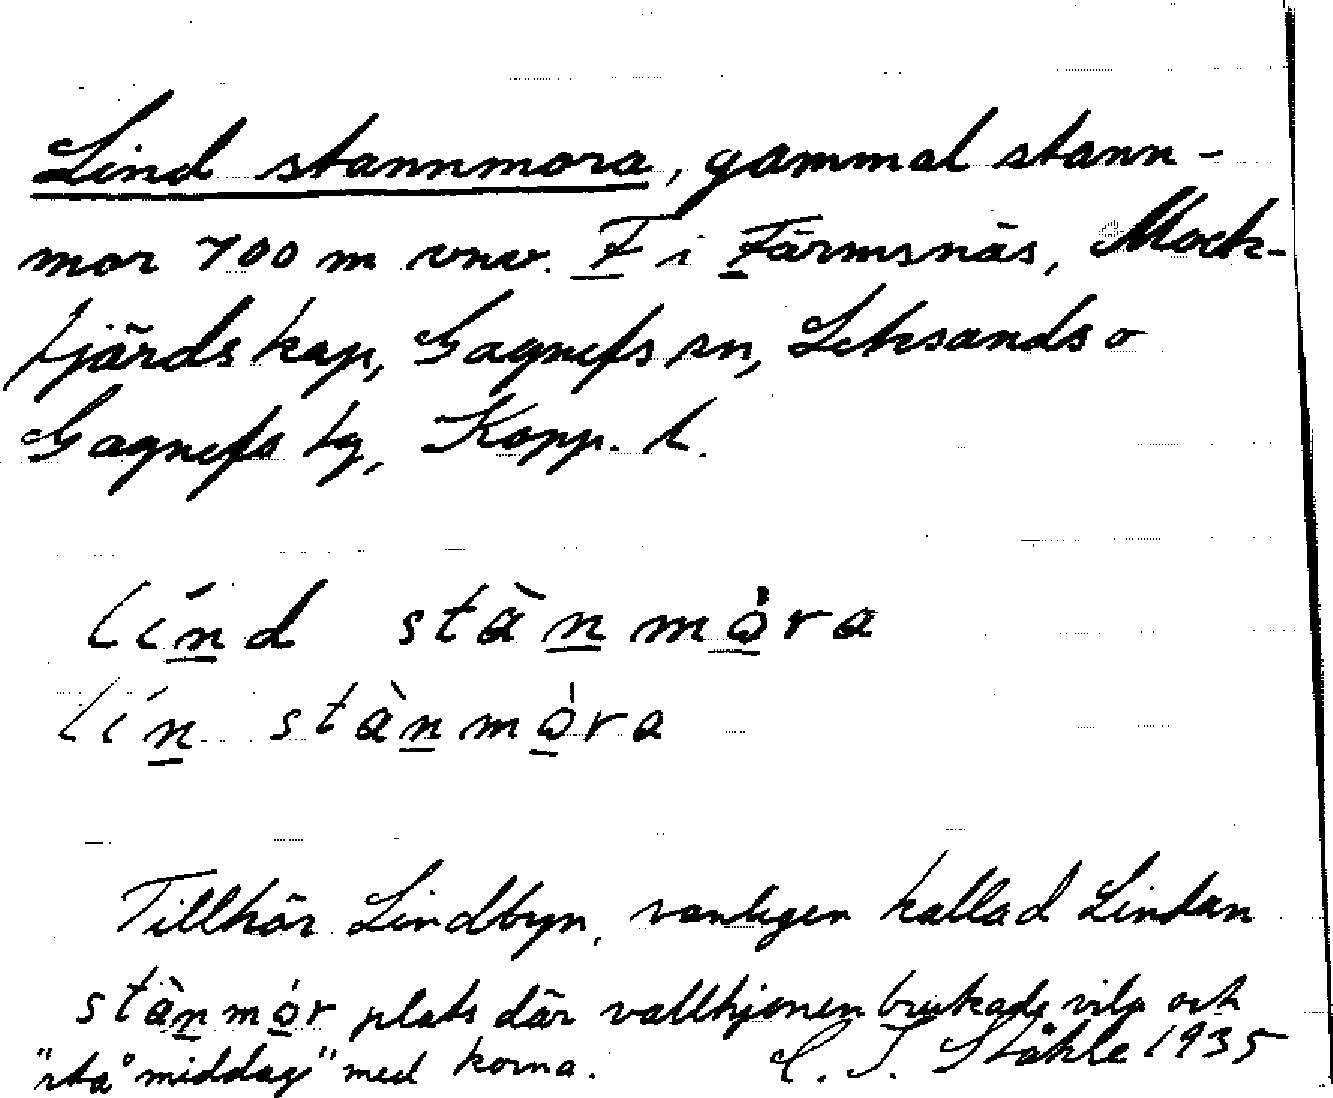 Lind stannmora, gammal stann-
mor 700 m vnv. F i Färmsnäs, Mock-
fjärds kap, Gagnefs sn, Leksands o
Gagnefs tg, Kopp. l.
lín̲d stàn̲mo̲̍ra
lín̲ stàn̲mo̲̍ra
Tillhör Lindbyn, vanligen kallad Lindan
stàn̲mo̲̍r plats där vallhjonen brukade vila och
"stå middag" med korna. C. I. Ståhle 1935